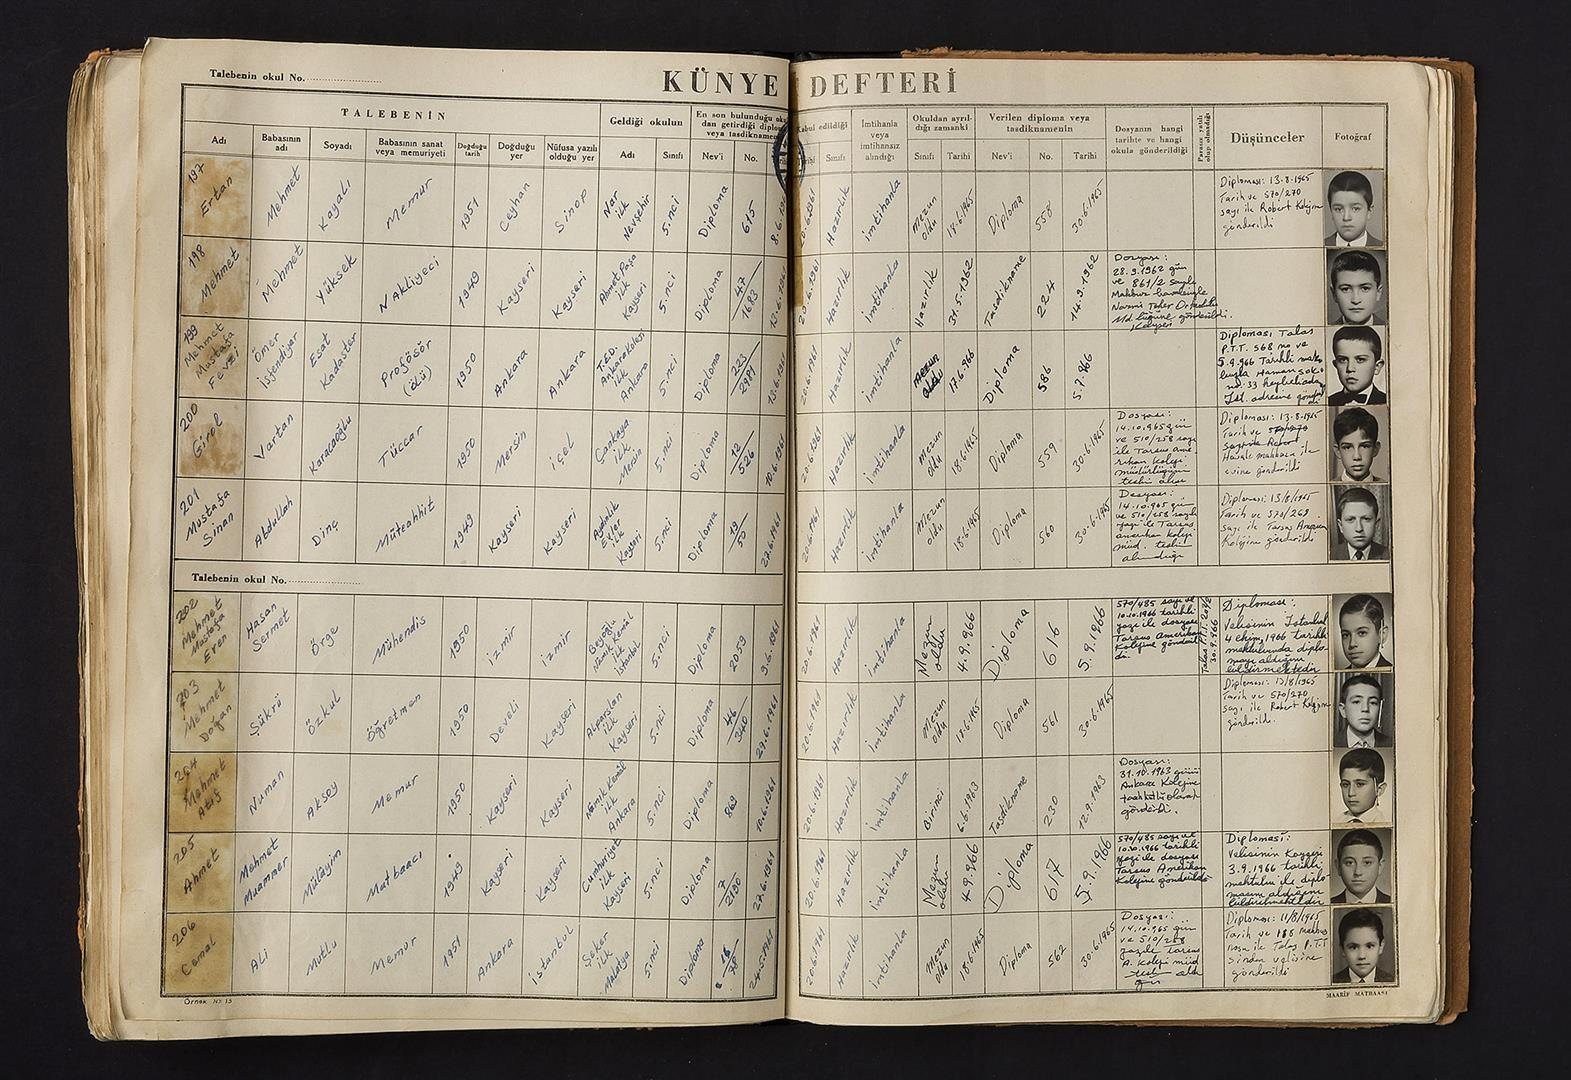 Talebenin okul No.
KÜNYE DEFTERİ
TALEBENİN
Geldiği okulun
En son bulunduğu oku
dan getirdiği diplom
veya tasdiknamen
Kabul edildiği
İmtihanla
veya
imtihansız
alındığı
Okuldan ayrıl-
dığı zamanki
Verilen diploma veya
tasdiknamenin
Dosyanın hangi
tarihte ve hangi
okula gönderildiği
Parasız yatılı
olup olmadığı
Düşünceler
Fotoğraf
Adı
Babasının
adı
Soyadı
Babasının sanat
veya memuriyeti
Doğduğu
tarih
Doğduğu
yer
Nüfusa yazılı
olduğu yer
Adı
Sınıfı
Nev'i
No.
Sınıfı
Sınıfı
Tarihi
Nev'i
No.
Tarihi
197
Ertan
Mehmet
Kayalı
Memur
1951
Ceyhan
Sinop
Nar
ilk
Nevşehir
5.nci
Diploma
615
Hazırlık
İmtihanla
Mezun
oldu
18.6.1965
Diploma
558
30.6.1965
Diploması: 13-8-1965
Tarih ve 570/270
sayı ile Robert Kolejine
gönderildi
198
Mehmet
Mehmet
Yüksek
Nakliyeci
1949
Kayseri
Kayseri
Ahmet Paşa
ilk
Kayseri
5.nci
Diploma
47
1683
Hazırlık
İmtihanla
Hazırlık
31.5.1962
Tasdikname
224
14.9.1962
Dosyası:
28.9.1962 gün
ve 861/2 sayılı
gönderildi.
Kayseri
199
Mehmet
Mustafa
Fevzi
Ömer
İsfendiyar
Esat
Kadaster
Profösör
(ölü)
1950
Ankara
Ankara
T.E.D.
Ankara Koleji
ilk
Ankara
5.nci
Diploma
223
2981
20.6.1961
Hazırlık
İmtihanla
Mezun
oldu
17.6.966
Diploma
586
5.9.966
Diploması Talas
P.T.T. 568 no ve
5.9.966 Tarihli mak-
buzla Haman sok.
no. 33 Heybeliada
İst. adresine gönderil
di
200
Girol
Vartan
Karacaoğlu
Tüccar
1950
Mersin
İçel
Çankaya
ilk
Mersin
5.nci
Diploma
12
526
10.6.1961
20.6.1961
Hazırlık
İmtihanla
Mezun
oldu
18.6.1965
Diploma
559
30.6.1965
Dosyası:
14.10.1965 gün
ve 510/258 sayı
ile Tarsus Ame
rikan Koleji
müdürlüğünün
Diploması: 13-8-1965
Tarih ve 570/270
sayı ile Robert
evine gönderildi
201
Mustafa
Sinan
Abdullah
Dinç
Müteahhit
1949
Kayseri
Kayseri
ilk
Kayseri
5.nci
Diploma
19
50
27.6.1961
20.6.1961
Hazırlık
İmtihanla
Mezun
oldu
18.6.1965
Diploma
560
30.6.1965
Dosyası:
14.10.965 gün
ve 510/258 sayılı
yazı ile Tarsus
amerikan koleji
müd. teslim
alındığı
Diploması: 13/8/1965
Tarih ve 570/269
sayı ile Tarsus Amerikan
Kolejine gönderildi
Talebenin okul No.
202
Mehmet
Mustafa
Eren
Hasan
Sermet
Örge
Mühendis
1950
İzmir
İzmir
Beyoğlu
Namık Kemal
ilk
İstanbul
5.nci
Diploma
2059
9.6.1961
20.6.1961
Hazırlık
İmtihanla
Mezun
oldu
4.9.966
Diploma
616
5.9.1966
570/485 sayı ve
10.10.1966 tarihli
yazı ile dosyası
Tarsus Amerikan
Kolejine gönderil
di.
30.9.966
Diploması:
Velisinin İstanbul
4 ekim 1966 tarihli
mektubunda diplo-
mayı aldığını
bildirmektedir
203
Mehmet
Doğan
Şükrü
Özkul
Öğretmen
1950
Develi
Kayseri
Alparslan
ilk
Kayseri
5.nci
Diploma
46
340
29.6.1961
20.6.1961
Hazırlık
İmtihanla
Mezun
oldu
18.6.1965
Diploma
561
30.6.1965
Diploması: 13/8/1965
Tarih ve 570/270
sayı ile Robert Kolejine
gönderildi.
204
Mehmet
Atıf
Numan
Aksoy
Memur
1950
Kayseri
Kayseri
Namık Kemal
ilk
Ankara
5.nci
Diploma
863
10.6.1961
20.6.1961
Hazırlık
İmtihanla
Birinci
6.6.1963
Tasdikname
230
12.9.1963
Dosyası:
31.10.1963 günü
Ankara Kolejine
taahhütlü olarak
gönderildi.
205
Ahmet
Mehmet
Muammer
Mülayim
Matbaacı
1949
Kayseri
Kayseri
Cumhuriyet
ilk
Kayseri
5.nci
Diploma
7
2190
27.6.1961
20.6.1961
Hazırlık
İmtihanla
Mezun
oldu
4.9.966
Diploma
617
5.9.1966
570/485 sayı ve
10.10.1966 tarihli
yazı ile dosyası
Tarsus Amerikan
Kolejine gönderildi
Diploması:
Velisinin Kayseri
3.9.1966 tarihli
mektubu ile diplo-
masını aldığını
bildirmektedir
206
Cemal
Ali
Mutlu
Memur
1951
Ankara
İstanbul
Şeker
ilk
Malatya
5.nci
Diploma
24.5.1961
20.6.1961
Hazırlık
İmtihanla
Mezun
oldu
18.6.1965
Diploma
562
30.6.1965
Dosyası:
14.10.965 gün
ve 510/258
yazile Tarsus
A. Koleji müd
Diploması: 11/8/1965
Tarih ve 188 makbuz
nosu ile Talas P.T.T
sinden velisine
gönderildi
Örnek No 15
MAARİF MATBAASI